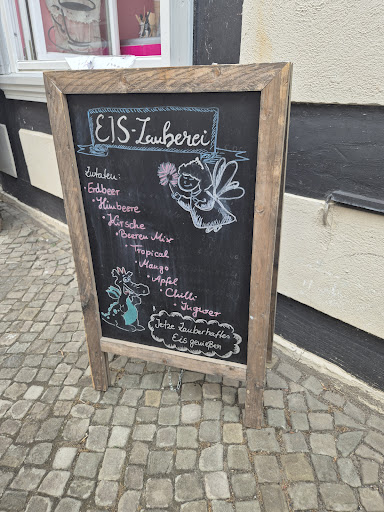 EIS-Zauberei
Zutaten:
• Erdbeer
• Himbeere
• Kirsche
• Beeren Mix
• Tropical
• Mango
• Apfel
• Chilli
• Ingwer
Jetzt Zauberhaftes
Eis genießen